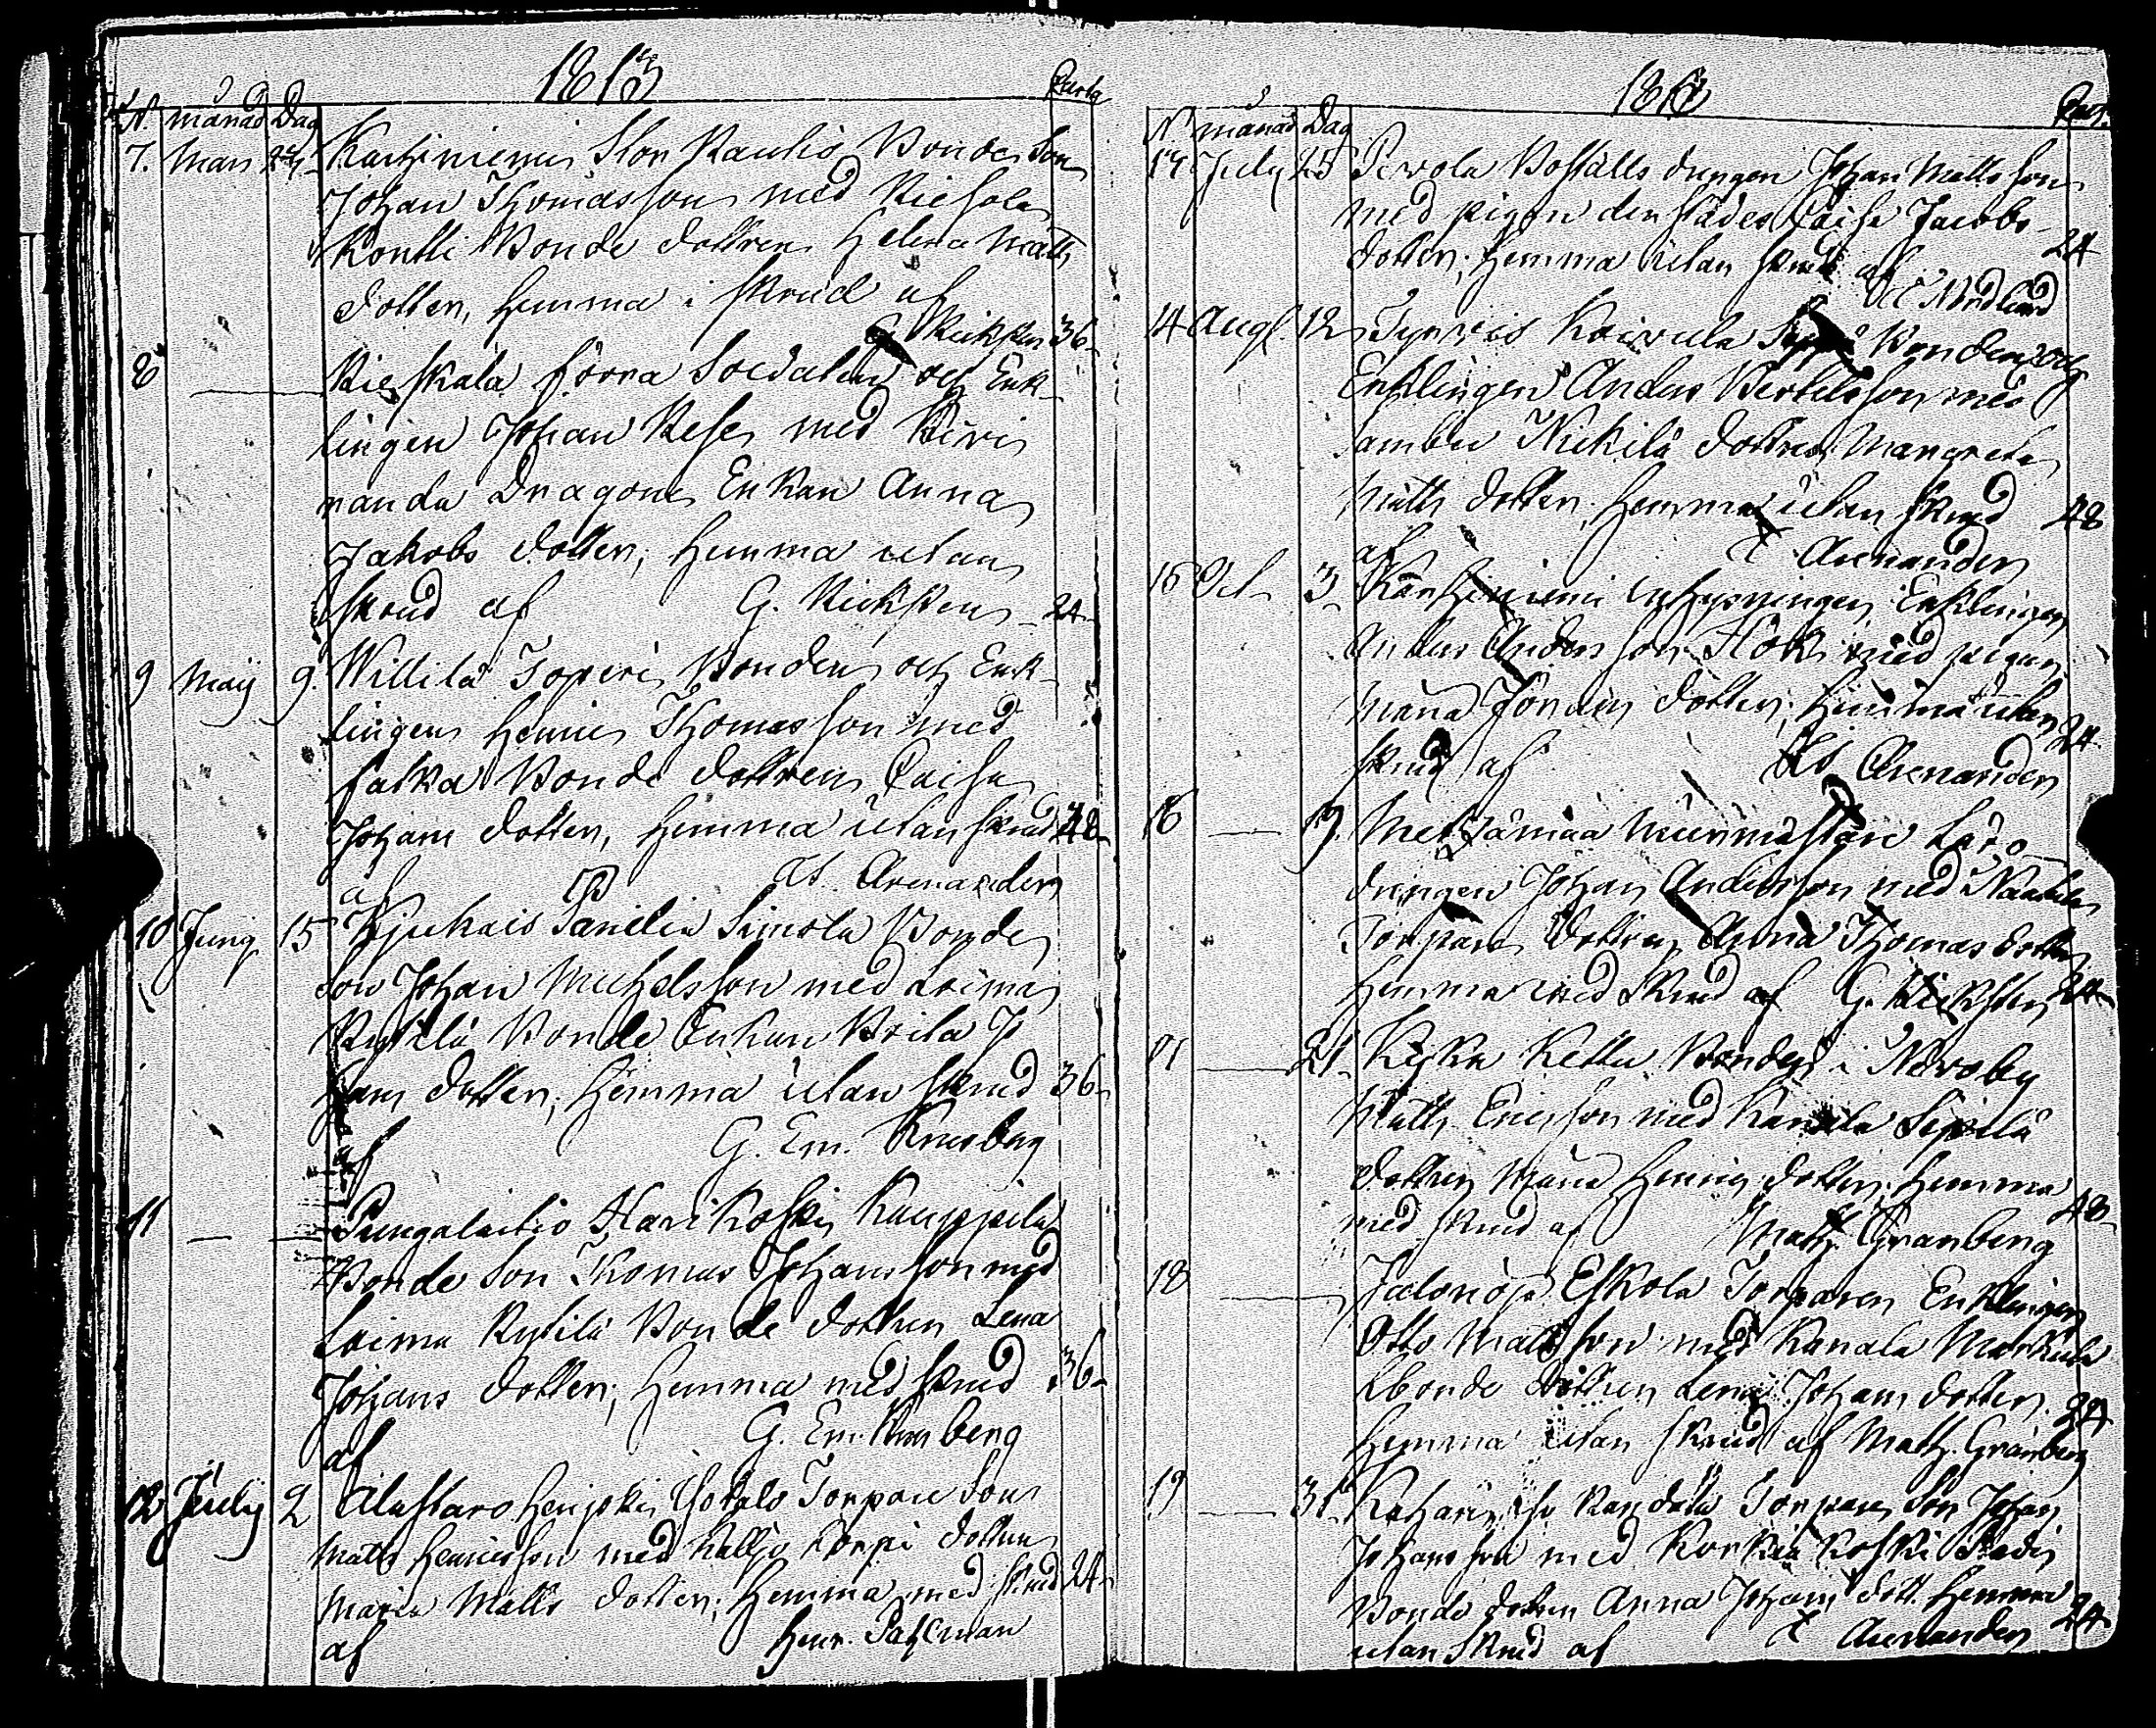 1813
N. månad Dag
7. Mars 24 Karhiniemi Stor Paulis Bonde Son
Johan Thomasson med Kiesala
Kontti Bonde dottren Helena Matts
dotter, hemma i skrud af
G. Rickstén 36
8 Kieskala förra Soldaten och Enk-
lingen Johan Rese med Kivi
randa Dragone Enkan Anna
Jakobs dotter, hemma utan
skrud af G. Rickstén 24
9 Maij 9. Willilä Toperi Bonden och Enk-
lingen Henric Thomasson med
Bonde dottren Caisa
Johans dotter, hemma utan skrud 48
af At. Arenander
10 Junij 15 Kjukais Panelia Simola Bonde
Son Johan Michelsson med Loima
Kylilä Bonde Enkan Brita Jo
hans dotter, hemma utan skrud 36
af G. Em. Krusberg
11 Pungalaitio Harikoski Kauppila
Bonde Son Thomas Johansson med
Loima Kylilä Bonde dottren Lena
Johans dotter, hemma med skrud 36
af G. Em. Krusberg
12 Julij 2 Alastaro Henjoki Torpare Son
Matts Henricsson med Korpi dottren
Maria Matts dotter, hemma med skrud 24
af Henr. Pahlman
1813
N månad Dag
Julij 25 Pervola Boställs drängen Johan Mattsson
med pigan derstädes Caisa Jacobs
dotter, hemma utan skrud af 24
Nordlund
14 Aug. 12 Tyrvis Kaivula Seppä Bonden och
Enklingen Anders Bertelsson med
Sambu Nickilä dottren Margreta
Matts dotter, hemma utan skrud 48
af Arenander
15 Oct 3 Karhiniemi Inhysningen Enklingen
Anders Andersson Hök med pigan
Maria Jöran dotter, hemma utan
skrud af At Arenander 24
16 Metzämaa Murmästare Läro
drängen Johan Andersson med
Torpare dottren Anna Thomas dotter
hemma med skrud af G. Rickstén 24
21 Keskn Kettu Bonden i Nevoby
Matts Ericsson med Kanala Sipilä
dottren Maria Henric dotter, hemma
med skrud af Matth. Granberg 48
18 Jalonoja Eskola Torparen Enklingen
Otto Mattsson med Kanala Markula
Bonde dottren Lena Johans dotter
hemma utan skrud af Math. Granberg 24
19 31 Torpare Son Johan
Johansson med Korkiakoski
Bonde dottren Anna Johans dott. hemma
utan skrud af Arenander 24